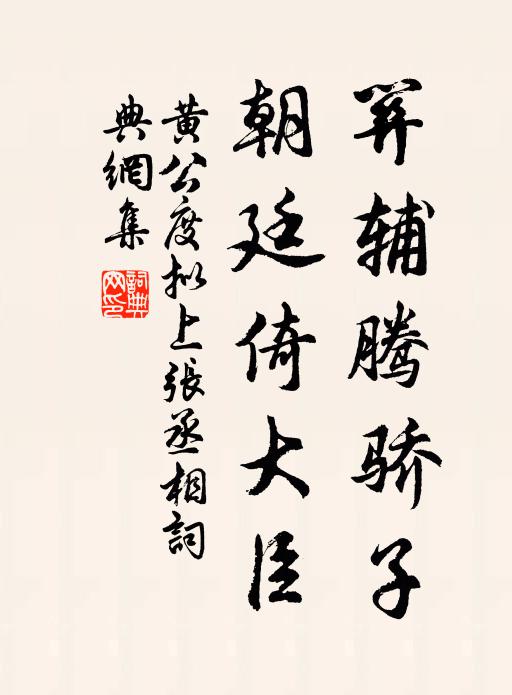 辅腾骄子
朝廷倚大臣
黄公度拟上張丞相詞
典網集
詞典
网印